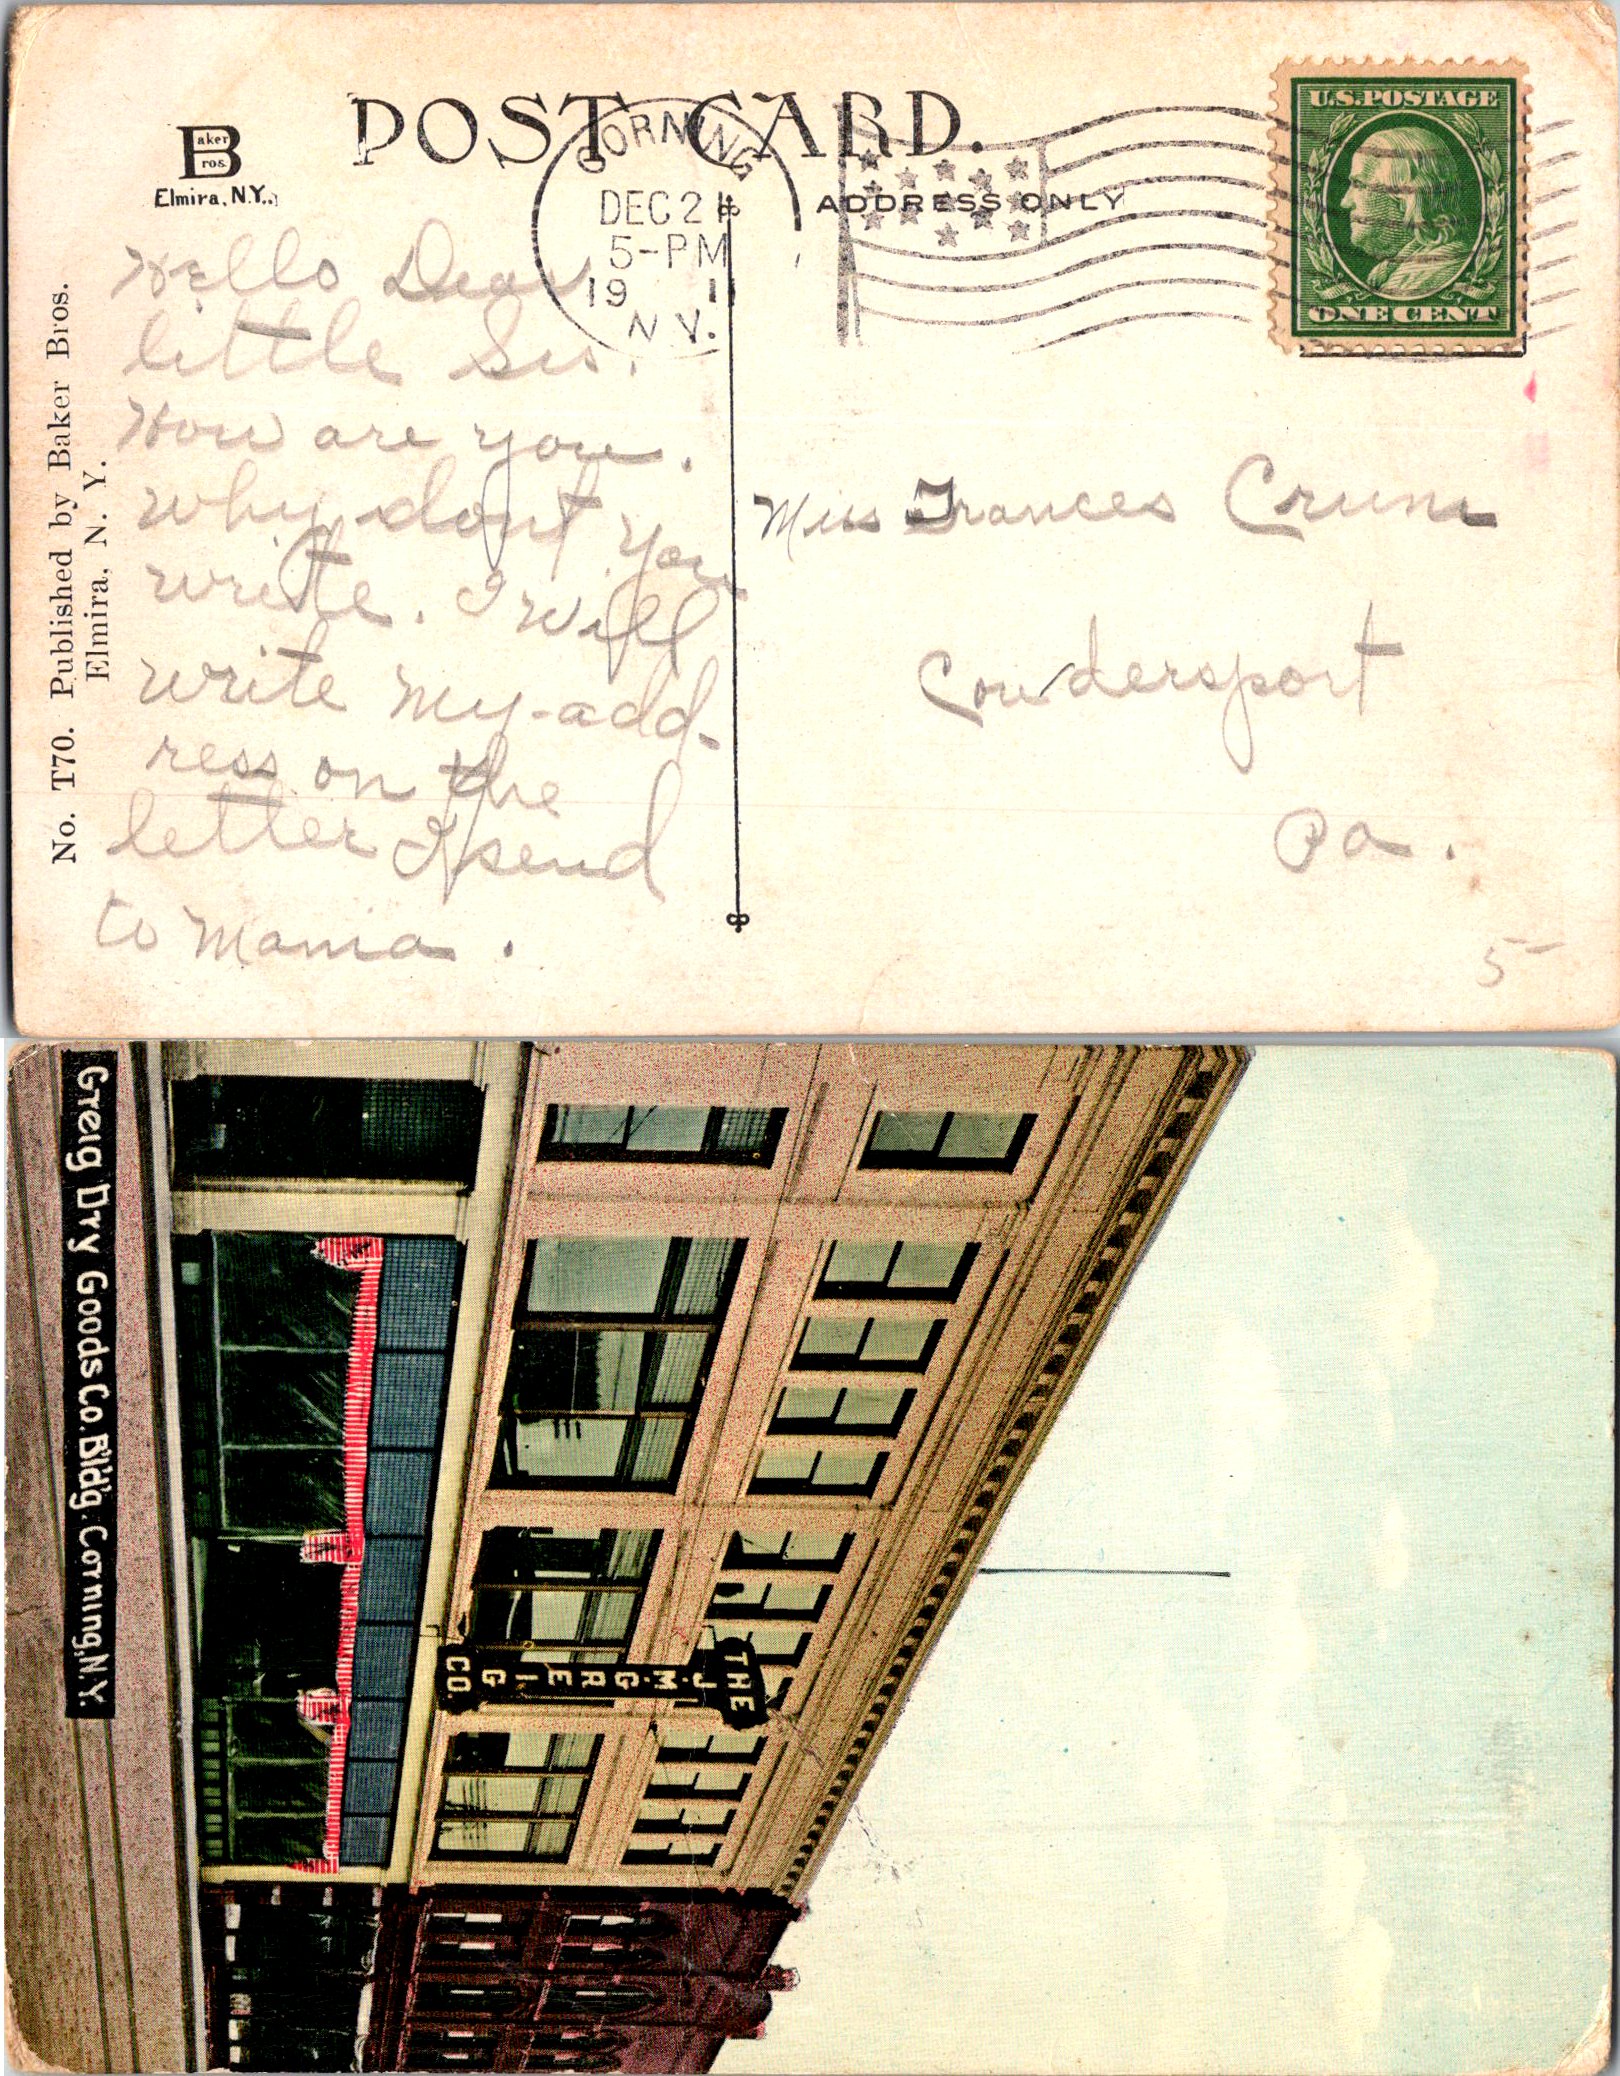 POST CARD.
Baker
Bros.
Elmira, N.Y.
ADDRESS ONLY
CORNING
DEC 2
5-PM
19 1
N.Y.
U.S. POSTAGE
ONE CENT
No. T70. Published by Baker Bros.
Elmira, N. Y.
Hello Dear
little Sis.
How are you.
Why dont you
write. I will
write my add-
ress on the
letter I send
to Mama.
Miss Frances Crum
Coudersport
Pa.
5-
Greig Dry Goods Co. Bld'g. Corning, N.Y.
THE
J.M.GREIG
CO.